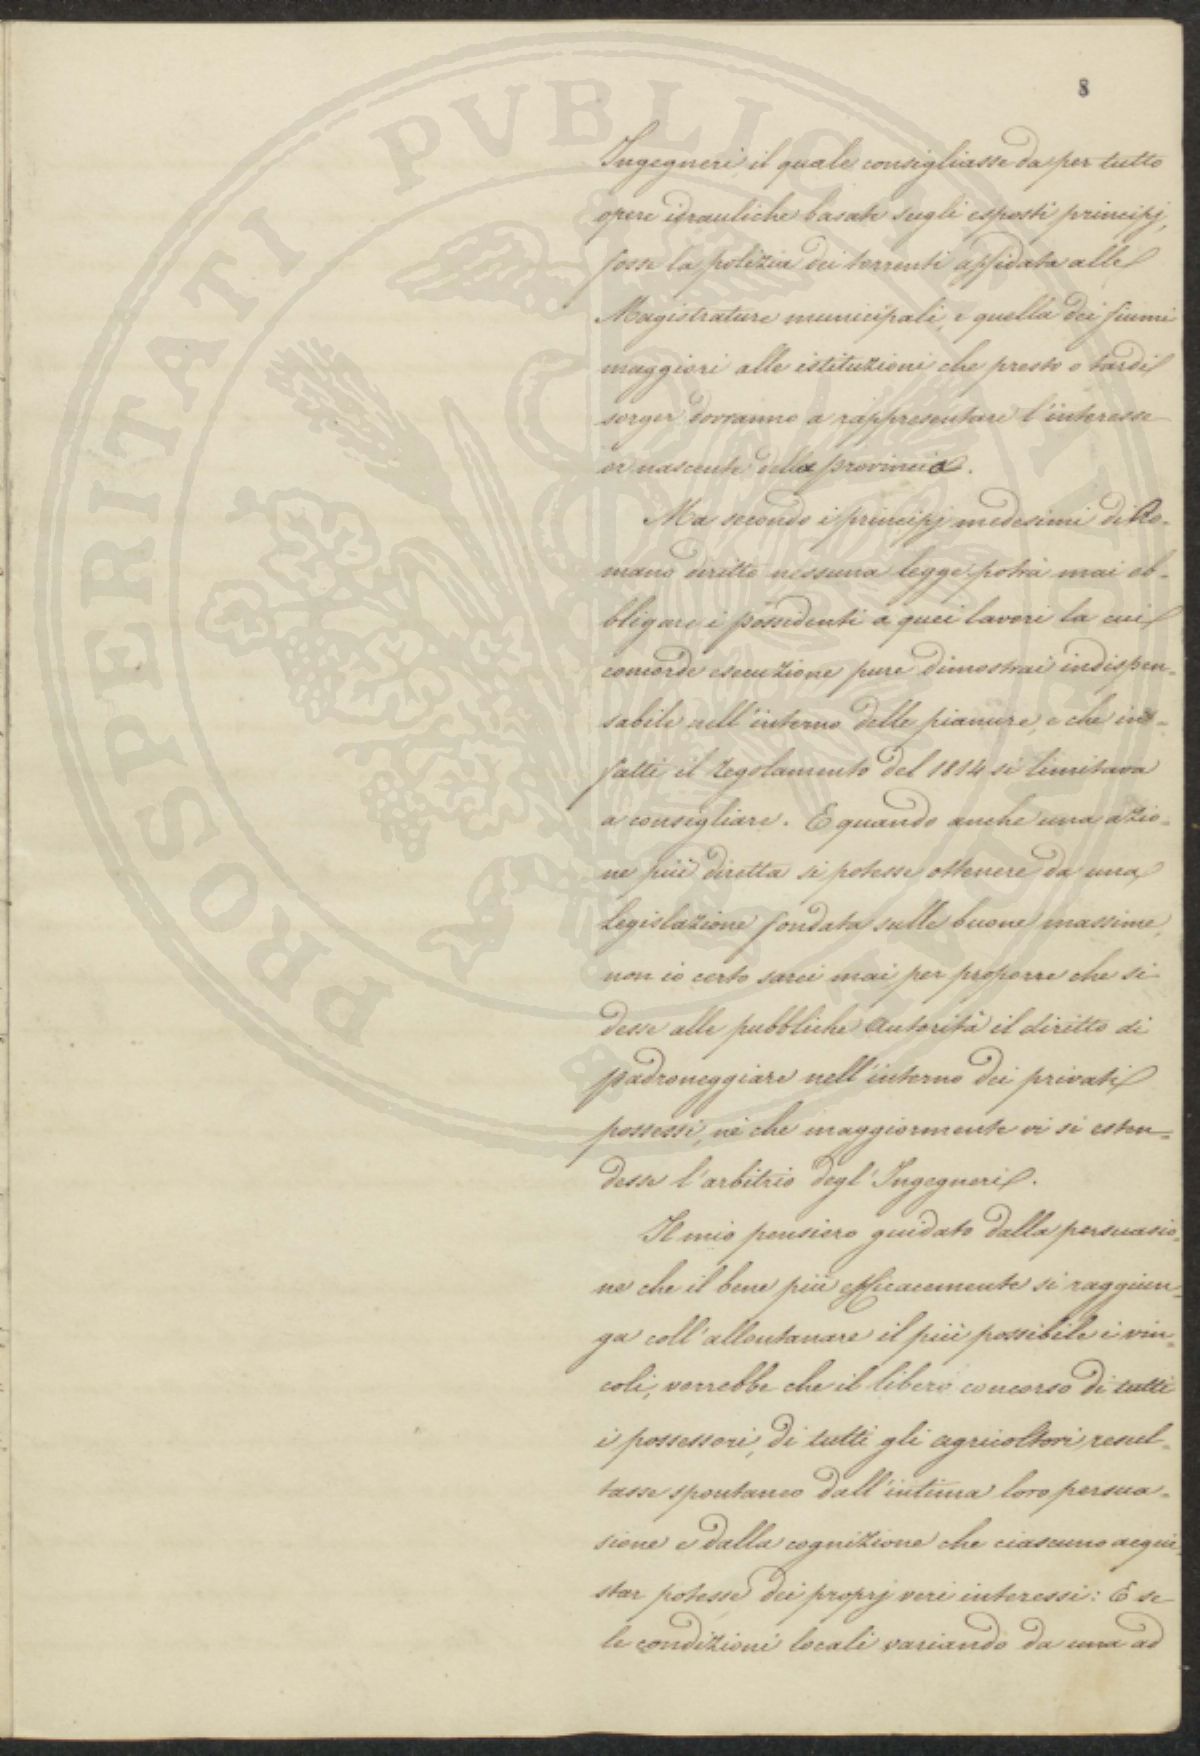 8
Ingegneri, il quale consigliasse da per tutto
opere idrauliche basate sugli esposti principj,
fosse la polizia dei torrenti affidata alle
Magistrature municipali, e quella dei fiumi
maggiori alle istituzioni che presto o tardi
sorger dovranno a rappresentare l'interesse
or nascente della provincia.
Ma secondo i principj medesimi di Ro-
mano diritto nessuna legge potrà mai ob-
bligare i possidenti a quei lavori la cui
concorde esecuzione pure dimostrai indispen-
sabile nell'interno delle pianure, e che in-
fatti il regolamento del 1814 si limitava
a consigliare. E quando anche una azio-
ne più diretta si potesse ottenere da una
legislazione fondata sulle buone massime,
non io certo sarei mai per proporre che si
desse alle pubbliche Autorità il diritto di
padroneggiare nell'interno dei privati
possessi, nè che maggiormente vi si esten-
desse l'arbitrio degl'Ingegneri.
Il mio pensiero guidato dalla persuasio-
ne che il bene più efficacemente si raggiun-
ga coll'allontanare il più possibile i vin-
coli, vorrebbe che il libero concorso di tutti
i possessori, di tutti gli agricoltori, resul-
tasse spontaneo dall'intima loro persua-
sione e dalla cognizione che ciascuno acqui-
star potesse dei proprj veri interessi: E se
le condizioni locali variando da una ad
PROSPERITATI PUBLICAE